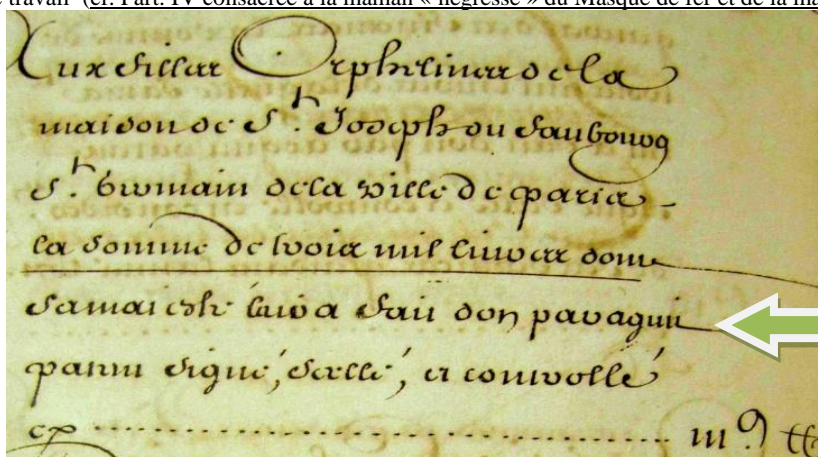 travail (cf. Part. IV consacrée à la maman « négresse » du Masque de fer et de la ma
Aux filles Orphelines de la
maison de St. Joseph du faubourg
St. Germain de la ville de paris
la somme de trois mil livres dont
sa maiesté leur a fait don par aquit
patent signé, scellé, et controllé
cy ........................................ iii